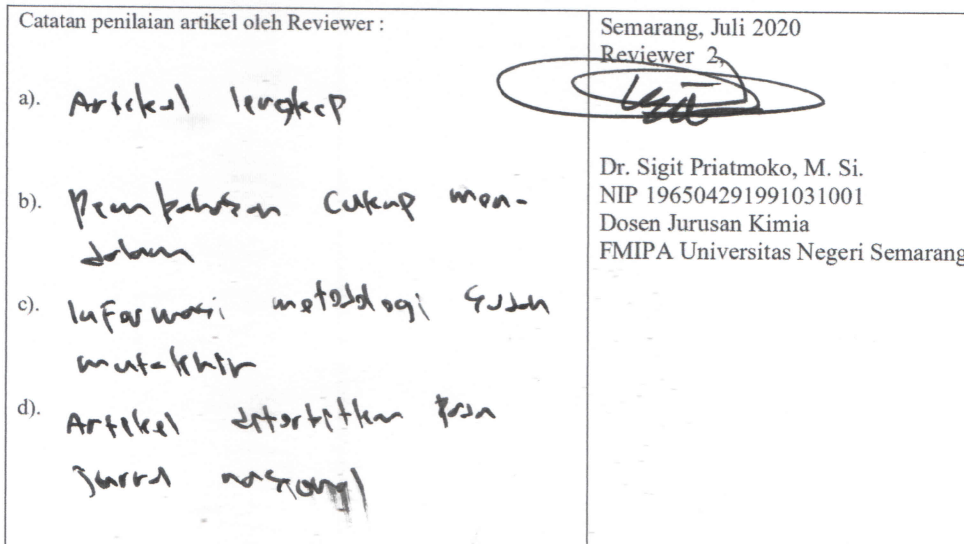 Catatan penilaian artikel oleh Reviewer :
a). Artikel lengkap
b). Pembahasan cukup men-
dalam
c). Informasi metodologi sudah
mutakhir
d). Artikel diterbitkan pada
jurnal nasional
Semarang, Juli 2020
Reviewer 2,
Dr. Sigit Priatmoko, M. Si.
NIP 196504291991031001
Dosen Jurusan Kimia
FMIPA Universitas Negeri Semarang